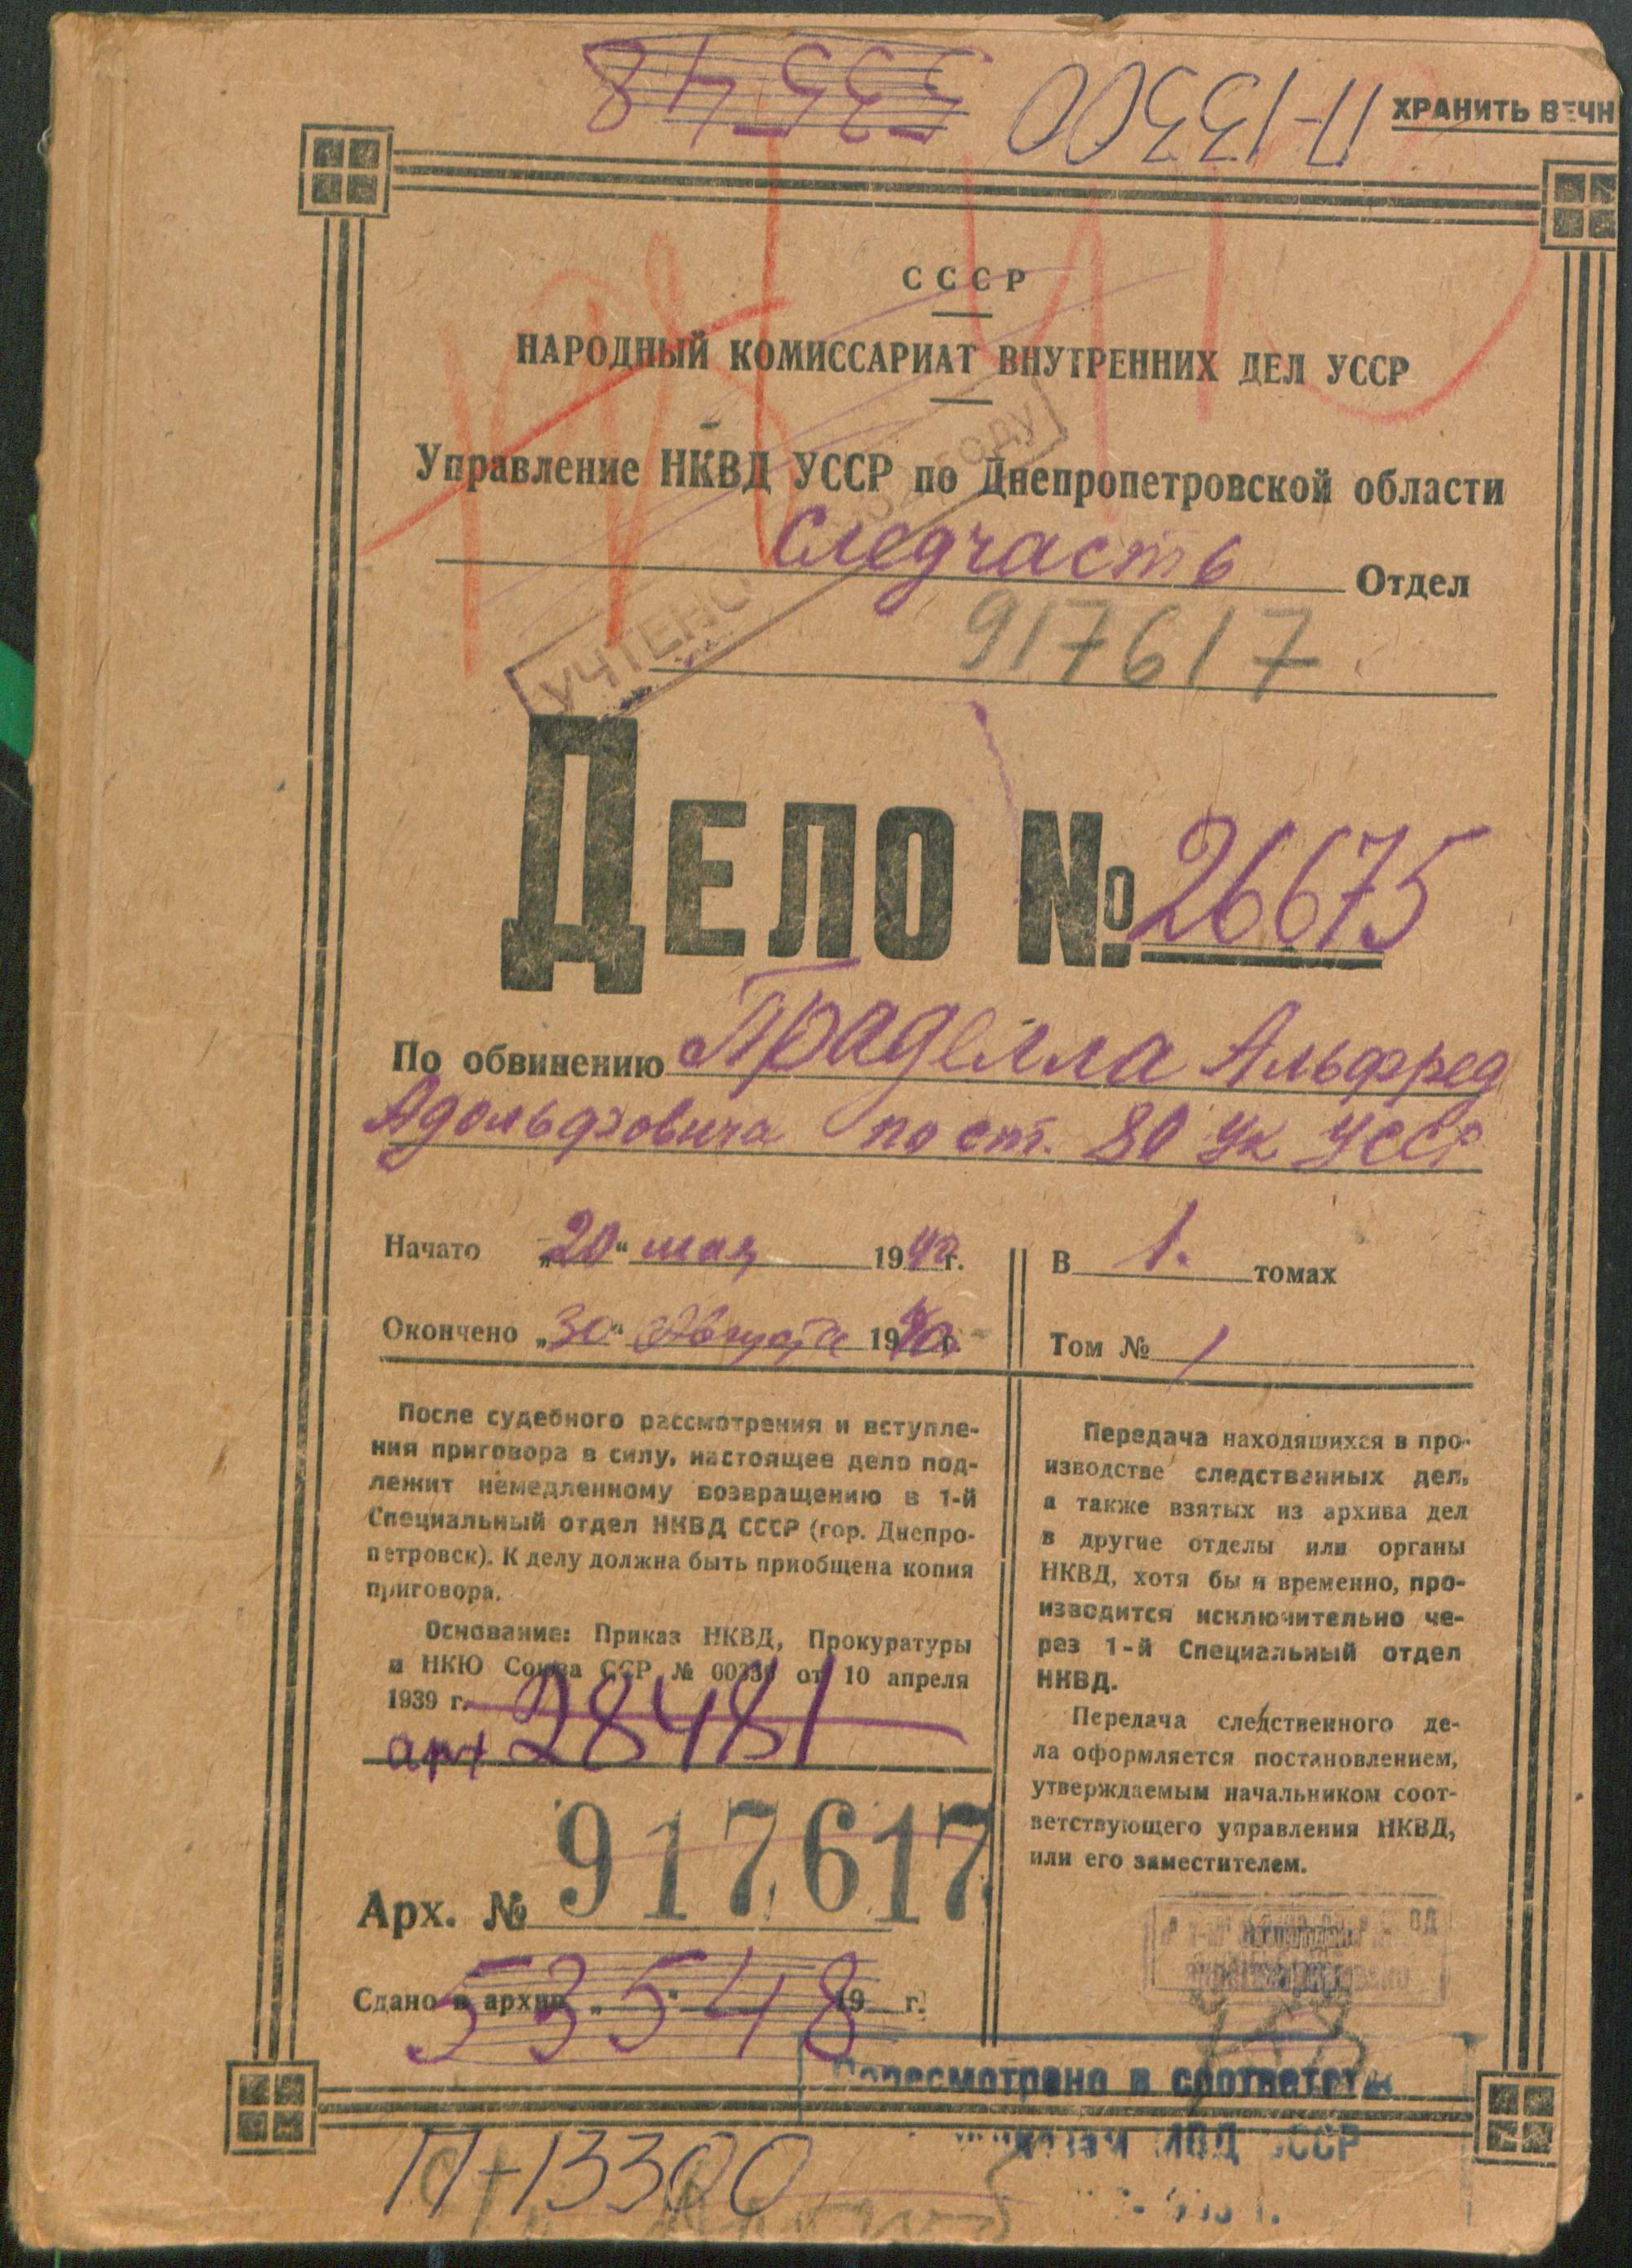 53548
П-13300
ХРАНИТЬ ВЕЧН
СССР
НАРОДНЫЙ КОМИССАРИАТ ВНУТРЕННИХ ДЕЛ УССР
Управление НКВД УССР по Днепропетровской области
Следчасть Отдел
917617
УЧТЕНО ГОДУ
ДЕЛО № 26675
По обвинению Праделла Альфред
Адольфовича по ст. 80 УК УССР
Начато „20“ мая 1940 г.
Окончено „30“ Августа 1940 г.
В 1. томах
Том № 1
После судебного рассмотрения и вступле-
ния приговора в силу, настоящее дело под-
лежит немедленному возвращению в 1-й
Специальный отдел НКВД СССР (гор. Днепро-
петровск). К делу должна быть приобщена копия
приговора.
Основание: Приказ НКВД, Прокуратуры
и НКЮ Союза ССР № от 10 апреля
1939 г.
арх 28481
Арх. № 917617
Сдано в архив „ “ 19 г.
53548
Передача находящихся в про-
изводстве следственных дел,
а также взятых из архива дел
в другие отделы или органы
НКВД, хотя бы и временно, про-
изводится исключительно че-
рез 1-й Специальный отдел
НКВД.
Передача следственного де-
ла оформляется постановлением,
утверждаемым начальником соот-
ветствующего управления НКВД,
или его заместителем.
Пересмотрено в соответств
СССР
П-13300